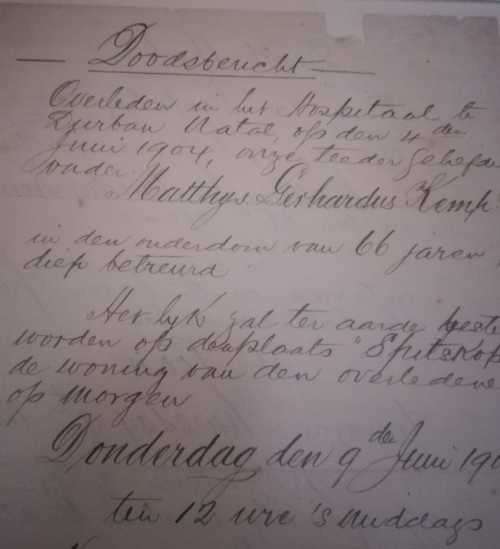 Doodsbericht
Overleden in het Hospitaal te
Durban Natal, op den 4 den
Juni 1904, onze teeder geliefde
vader
Matthys Gerhardus Kemp
in den ouderdom van 66 jaren
diep betreurd
Het lijk zal ter aarde beste
worden op de plaats "Spitskop
de woning van den overledene
op morgen
Donderdag den 9 den Juni 190
ten 12 ure 's middags